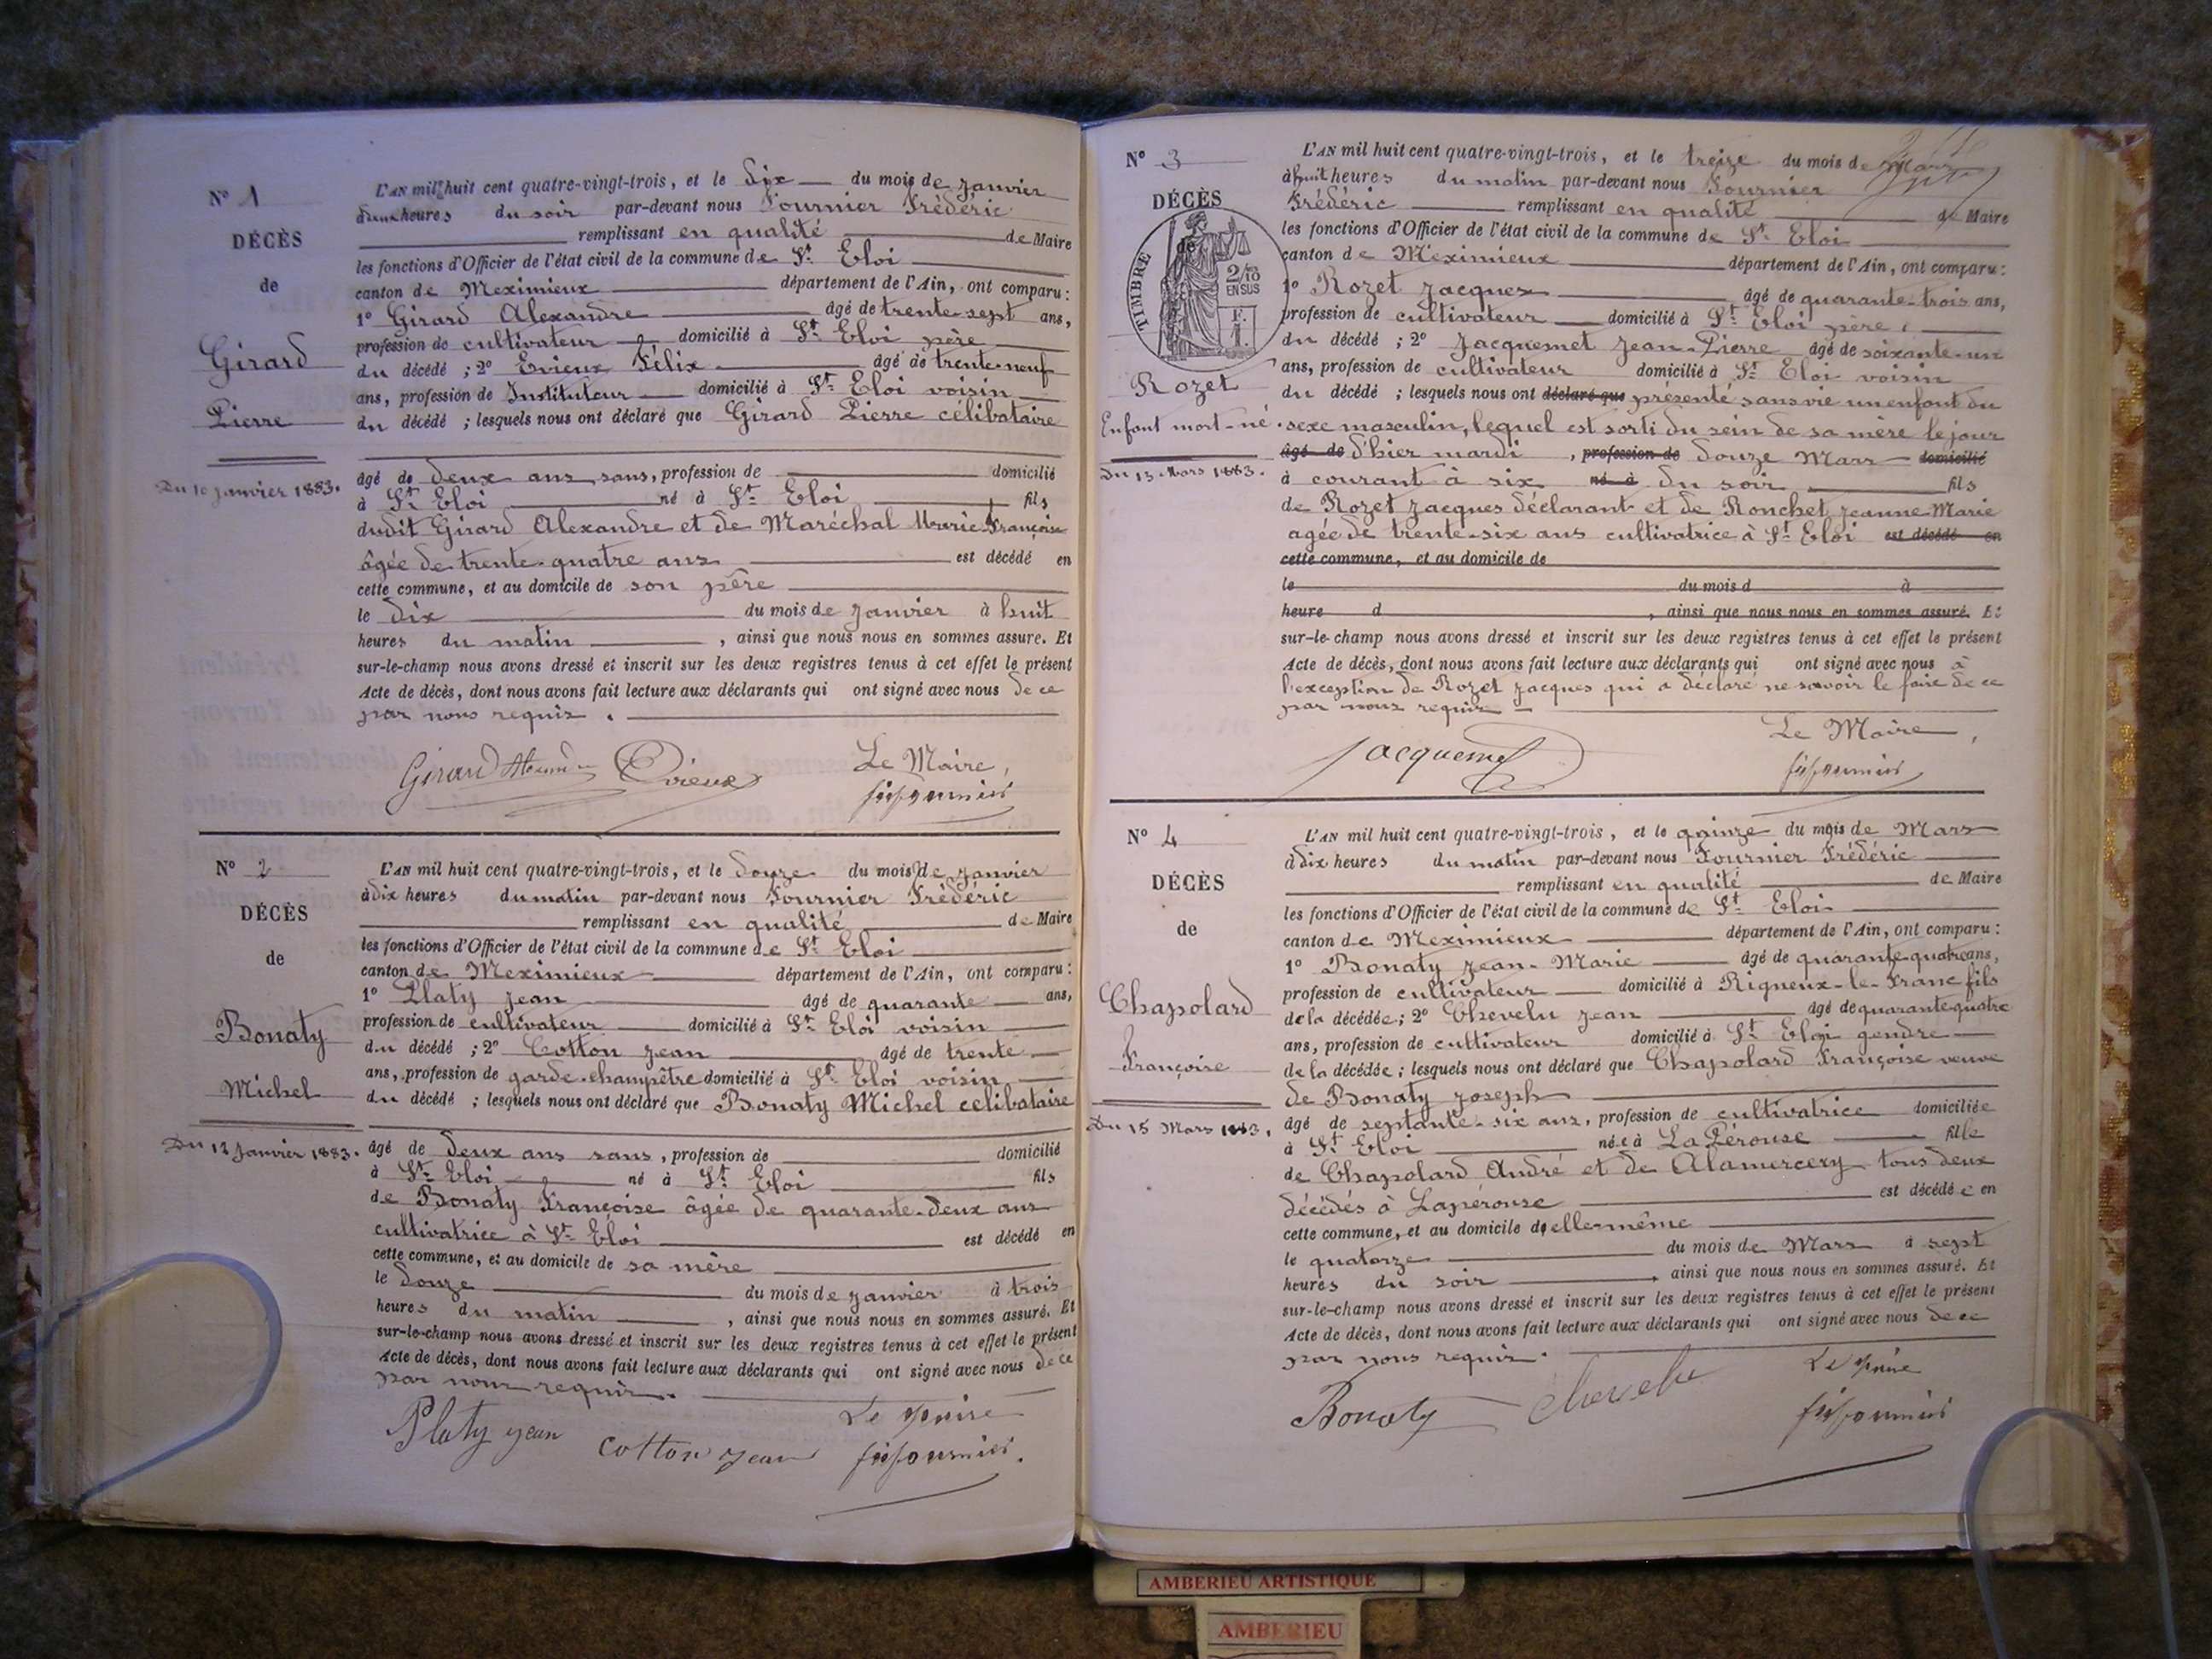 N° 1
DÉCÈS
de
Girard
Pierre
Du 10 Janvier 1883.
L'AN mil huit cent quatre-vingt-trois, et le dix du mois de Janvier
deux heures du soir par-devant nous Fournier Frédéric
remplissant en qualité de Maire
les fonctions d'Officier de l'état civil de la commune de St Eloi
canton de Meximieux département de l'Ain, ont comparu :
1° Girard Alexandre âgé de trente-sept ans,
profession de cultivateur domicilié à St Eloi père
du décédé ; 2° Evieux Félix âgé de trente-neuf
ans, profession de Instituteur domicilié à St Eloi voisin
du décédé ; lesquels nous ont déclaré que Girard Pierre célibataire
âgé de deux ans sans, profession de domicilié
à St Eloi né à St Eloi fils
dudit Girard Alexandre et de Maréchal Marie Françoise
âgée de trente-quatre ans est décédé en
cette commune, et au domicile de son père
le dix du mois de Janvier à huit
heures du matin , ainsi que nous nous en sommes assuré. Et
sur-le-champ nous avons dressé et inscrit sur les deux registres tenus à cet effet le présent
Acte de décès, dont nous avons fait lecture aux déclarants qui ont signé avec nous de ce
par nous requis.
Girard Evieux Le Maire,
N° 2
DÉCÈS
de
Bonaty
Michel
Du 12 Janvier 1883.
L'AN mil huit cent quatre-vingt-trois, et le douze du mois de Janvier
à dix heures du matin par-devant nous Fournier Frédéric
remplissant en qualité de Maire
les fonctions d'Officier de l'état civil de la commune de St Eloi
canton de Meximieux département de l'Ain, ont comparu :
1° Platy Jean âgé de quarante ans,
profession de cultivateur domicilié à St Eloi voisin
du décédé ; 2° Cotton Jean âgé de trente
ans, profession de garde-champêtre domicilié à St Eloi voisin
du décédé ; lesquels nous ont déclaré que Bonaty Michel celibataire
âgé de deux ans sans, profession de domicilié
à St Eloi né à St Eloi fils
de Bonaty Françoise âgée de quarante-deux ans
cultivatrice à St Eloi est décédé en
cette commune, et au domicile de sa mère
le douze du mois de Janvier à trois
heures du matin , ainsi que nous nous en sommes assuré. Et
sur-le-champ nous avons dressé et inscrit sur les deux registres tenus à cet effet le présent
Acte de décès, dont nous avons fait lecture aux déclarants qui ont signé avec nous de ce
par nous requis.
Platy Jean Cotton Jean Le Maire
N° 3
DÉCÈS
de
TIMBRE
2/10
EN SUS
F.
1.
Rozet
Enfant mort-né.
Du 13 Mars 1883.
L'AN mil huit cent quatre-vingt-trois, et le treize du mois de Mars
à huit heures du matin par-devant nous Fournier
Frédéric remplissant en qualité de Maire
les fonctions d'Officier de l'état civil de la commune de St Eloi
canton de Meximieux département de l'Ain, ont comparu :
1° Rozet Jacques âgé de quarante-trois ans,
profession de cultivateur domicilié à St Eloi père,
du décédé ; 2° Jacquemet Jean-Pierre âgé de soixante-un
ans, profession de cultivateur domicilié à St Eloi voisin
du décédé ; lesquels nous ont déclaré que présenté sans vie un enfant du
sexe masculin, lequel est sorti du sein de sa mère le jour
âgé de d'hier mardi , profession de douze Mars domicilié
à courant à six né à du soir fils
de Rozet Jacques déclarant et de Ronchet Jeanne-Marie
agée de trente-six ans cultivatrice à St Eloi est décédé en
cette commune, et au domicile de
le du mois d à
heure d , ainsi que nous nous en sommes assuré. Et
sur-le-champ nous avons dressé et inscrit sur les deux registres tenus à cet effet le présent
Acte de décès, dont nous avons fait lecture aux déclarants qui ont signé avec nous à
l'exception de Rozet Jacques qui a déclaré ne savoir le faire de ce
par nous requis
Jacquemet Le Maire,
N° 4
DÉCÈS
de
Chapolard
Françoise
Du 15 Mars 1883.
L'AN mil huit cent quatre-vingt-trois, et le quinze du mois de Mars
à dix heures du matin par-devant nous Fournier Frédéric
remplissant en qualité de Maire
les fonctions d'Officier de l'état civil de la commune de St Eloi
canton de Meximieux département de l'Ain, ont comparu :
1° Bonaty Jean-Marie âgé de quarante-quatre ans,
profession de cultivateur domicilié à Rigneux-le-Franc fils
de la décédée ; 2° Chevelu Jean âgé de quarante quatre
ans, profession de cultivateur domicilié à St Eloi gendre
de la décédée ; lesquels nous ont déclaré que Chapolard Françoise veuve
de Bonaty Joseph
âgé de septante-six ans, profession de cultivatrice domiciliée
à St Eloi née à La Pérouse fille
de Chapolard André et de Alamercery tous deux
décédés à Lapérouse est décédée en
cette commune, et au domicile d'elle-même
le quatorze du mois de Mars à sept
heures du soir , ainsi que nous nous en sommes assuré. Et
sur-le-champ nous avons dressé et inscrit sur les deux registres tenus à cet effet le présent
Acte de décès, dont nous avons fait lecture aux déclarants qui ont signé avec nous de ce
par nous requis.
Bonaty Chevelu Le Maire
AMBERIEU ARTISTIQUE
AMBERIEU